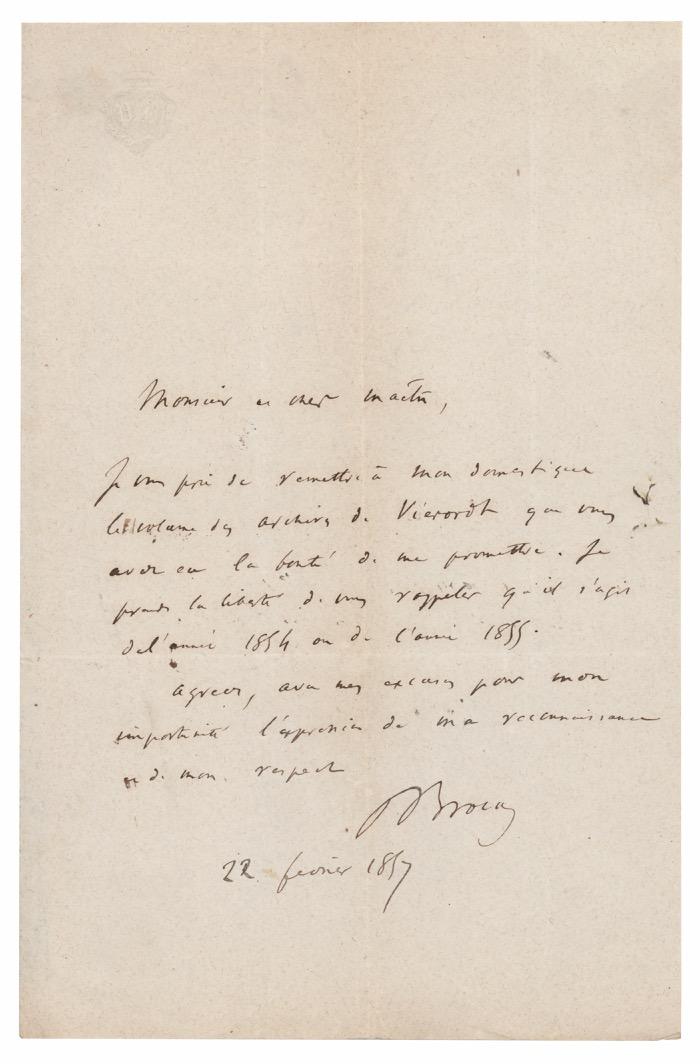 Monsieur et cher maître,
Je vous prie de remettre à mon domestique
le volume des archives de Vierordt que vous
avez eu la bonté de me promettre. Je
prends la liberté de vous rappeler qu'il s'agit
de l'année 1854 ou de l'année 1855.
Agréez, avec mes excuses pour mon
importunité l'expression de ma reconnaissance
et de mon respect
P Broca
22 février 1857